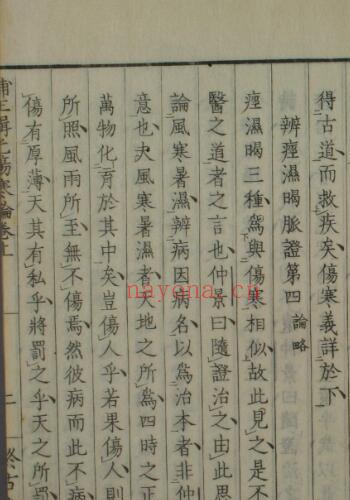 得古道而救疾矣傷寒義詳於下
辨痙濕暍脈證第四 論略
痙濕暍三種爲與傷寒相似故此見之是不
醫之道者之言也仲景曰隨證治之由此思
論風寒暑濕辨病因病名以爲治本者非仲
意也夫風寒暑濕者天地之所爲四時之正
萬物化育於其中矣豈傷人乎若果傷人則
所照風雨所至無不傷焉然彼病而此不病
傷有厚薄天其有私乎將罰之乎天之所罰
傷寒論卷上
二
nayona.cn